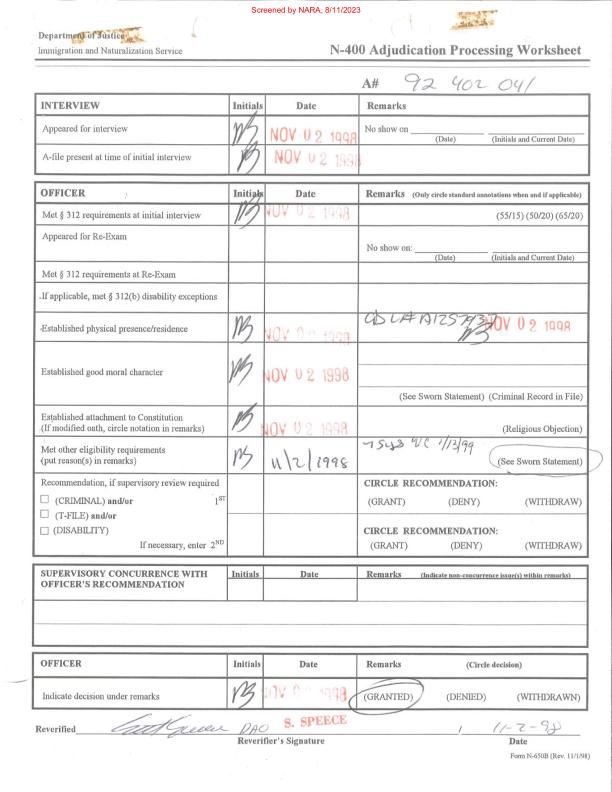 Screened by NARA, 8/11/2023
Department of Justice
Immigration and Naturalization Service
N-400 Adjudication Processing Worksheet
A# 92 402 041
INTERVIEW Initials Date Remarks
Appeared for interview NOV 02 1998 No show on
(Date) (Initials and Current Date)
A-file present at time of initial interview NOV 02 1998
OFFICER Initials Date Remarks (Only circle standard annotations when and if applicable)
Met § 312 requirements at initial interview NOV 02 1998 (55/15) (50/20) (65/20)
Appeared for Re-Exam
No show on:
(Date) (Initials and Current Date)
Met § 312 requirements at Re-Exam
If applicable, met § 312(b) disability exceptions
Established physical presence/residence NOV 02 1998 NOV 02 1998
Established good moral character NOV 02 1998
(See Sworn Statement) (Criminal Record in File)
Established attachment to Constitution
(If modified oath, circle notation in remarks) NOV 02 1998 (Religious Objection)
Met other eligibility requirements
(put reason(s) in remarks) 11/2/1998 1/13/99 (See Sworn Statement)
Recommendation, if supervisory review required CIRCLE RECOMMENDATION:
(CRIMINAL) and/or 1ST (GRANT) (DENY) (WITHDRAW)
(T-FILE) and/or
(DISABILITY) CIRCLE RECOMMENDATION:
If necessary, enter 2ND (GRANT) (DENY) (WITHDRAW)
SUPERVISORY CONCURRENCE WITH Initials Date Remarks (Indicate non-concurrence issue(s) within remarks)
OFFICER'S RECOMMENDATION
OFFICER Initials Date Remarks (Circle decision)
Indicate decision under remarks NOV 02 1998 (GRANTED) (DENIED) (WITHDRAWN)
Reverified DAO S. SPEECE 11-2-98
Reverifier's Signature Date
Form N-650B (Rev. 11/1/98)